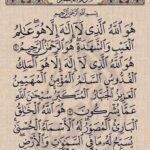 بِسْمِ اللَّهِ الرَّحْمَٰنِ الرَّحِيمِ
هُوَ اللَّهُ الَّذِي لَا إِلَٰهَ إِلَّا هُوَ عَالِمُ
الْغَيْبِ وَالشَّهَادَةِ هُوَ الرَّحْمَٰنُ الرَّحِيمُ
هُوَ اللَّهُ الَّذِي لَا إِلَٰهَ إِلَّا هُوَ الْمَلِكُ
الْقُدُّوسُ السَّلَامُ الْمُؤْمِنُ الْمُهَيْمِنُ
الْعَزِيزُ الْجَبَّارُ الْمُتَكَبِّرُ سُبْحَانَ اللَّهِ
عَمَّا يُشْرِكُونَ هُوَ اللَّهُ الْخَالِقُ
الْبَارِئُ الْمُصَوِّرُ لَهُ الْأَسْمَاءُ الْحُسْنَىٰ
يُسَبِّحُ لَهُ مَا فِي السَّمَاوَاتِ وَالْأَرْضِ